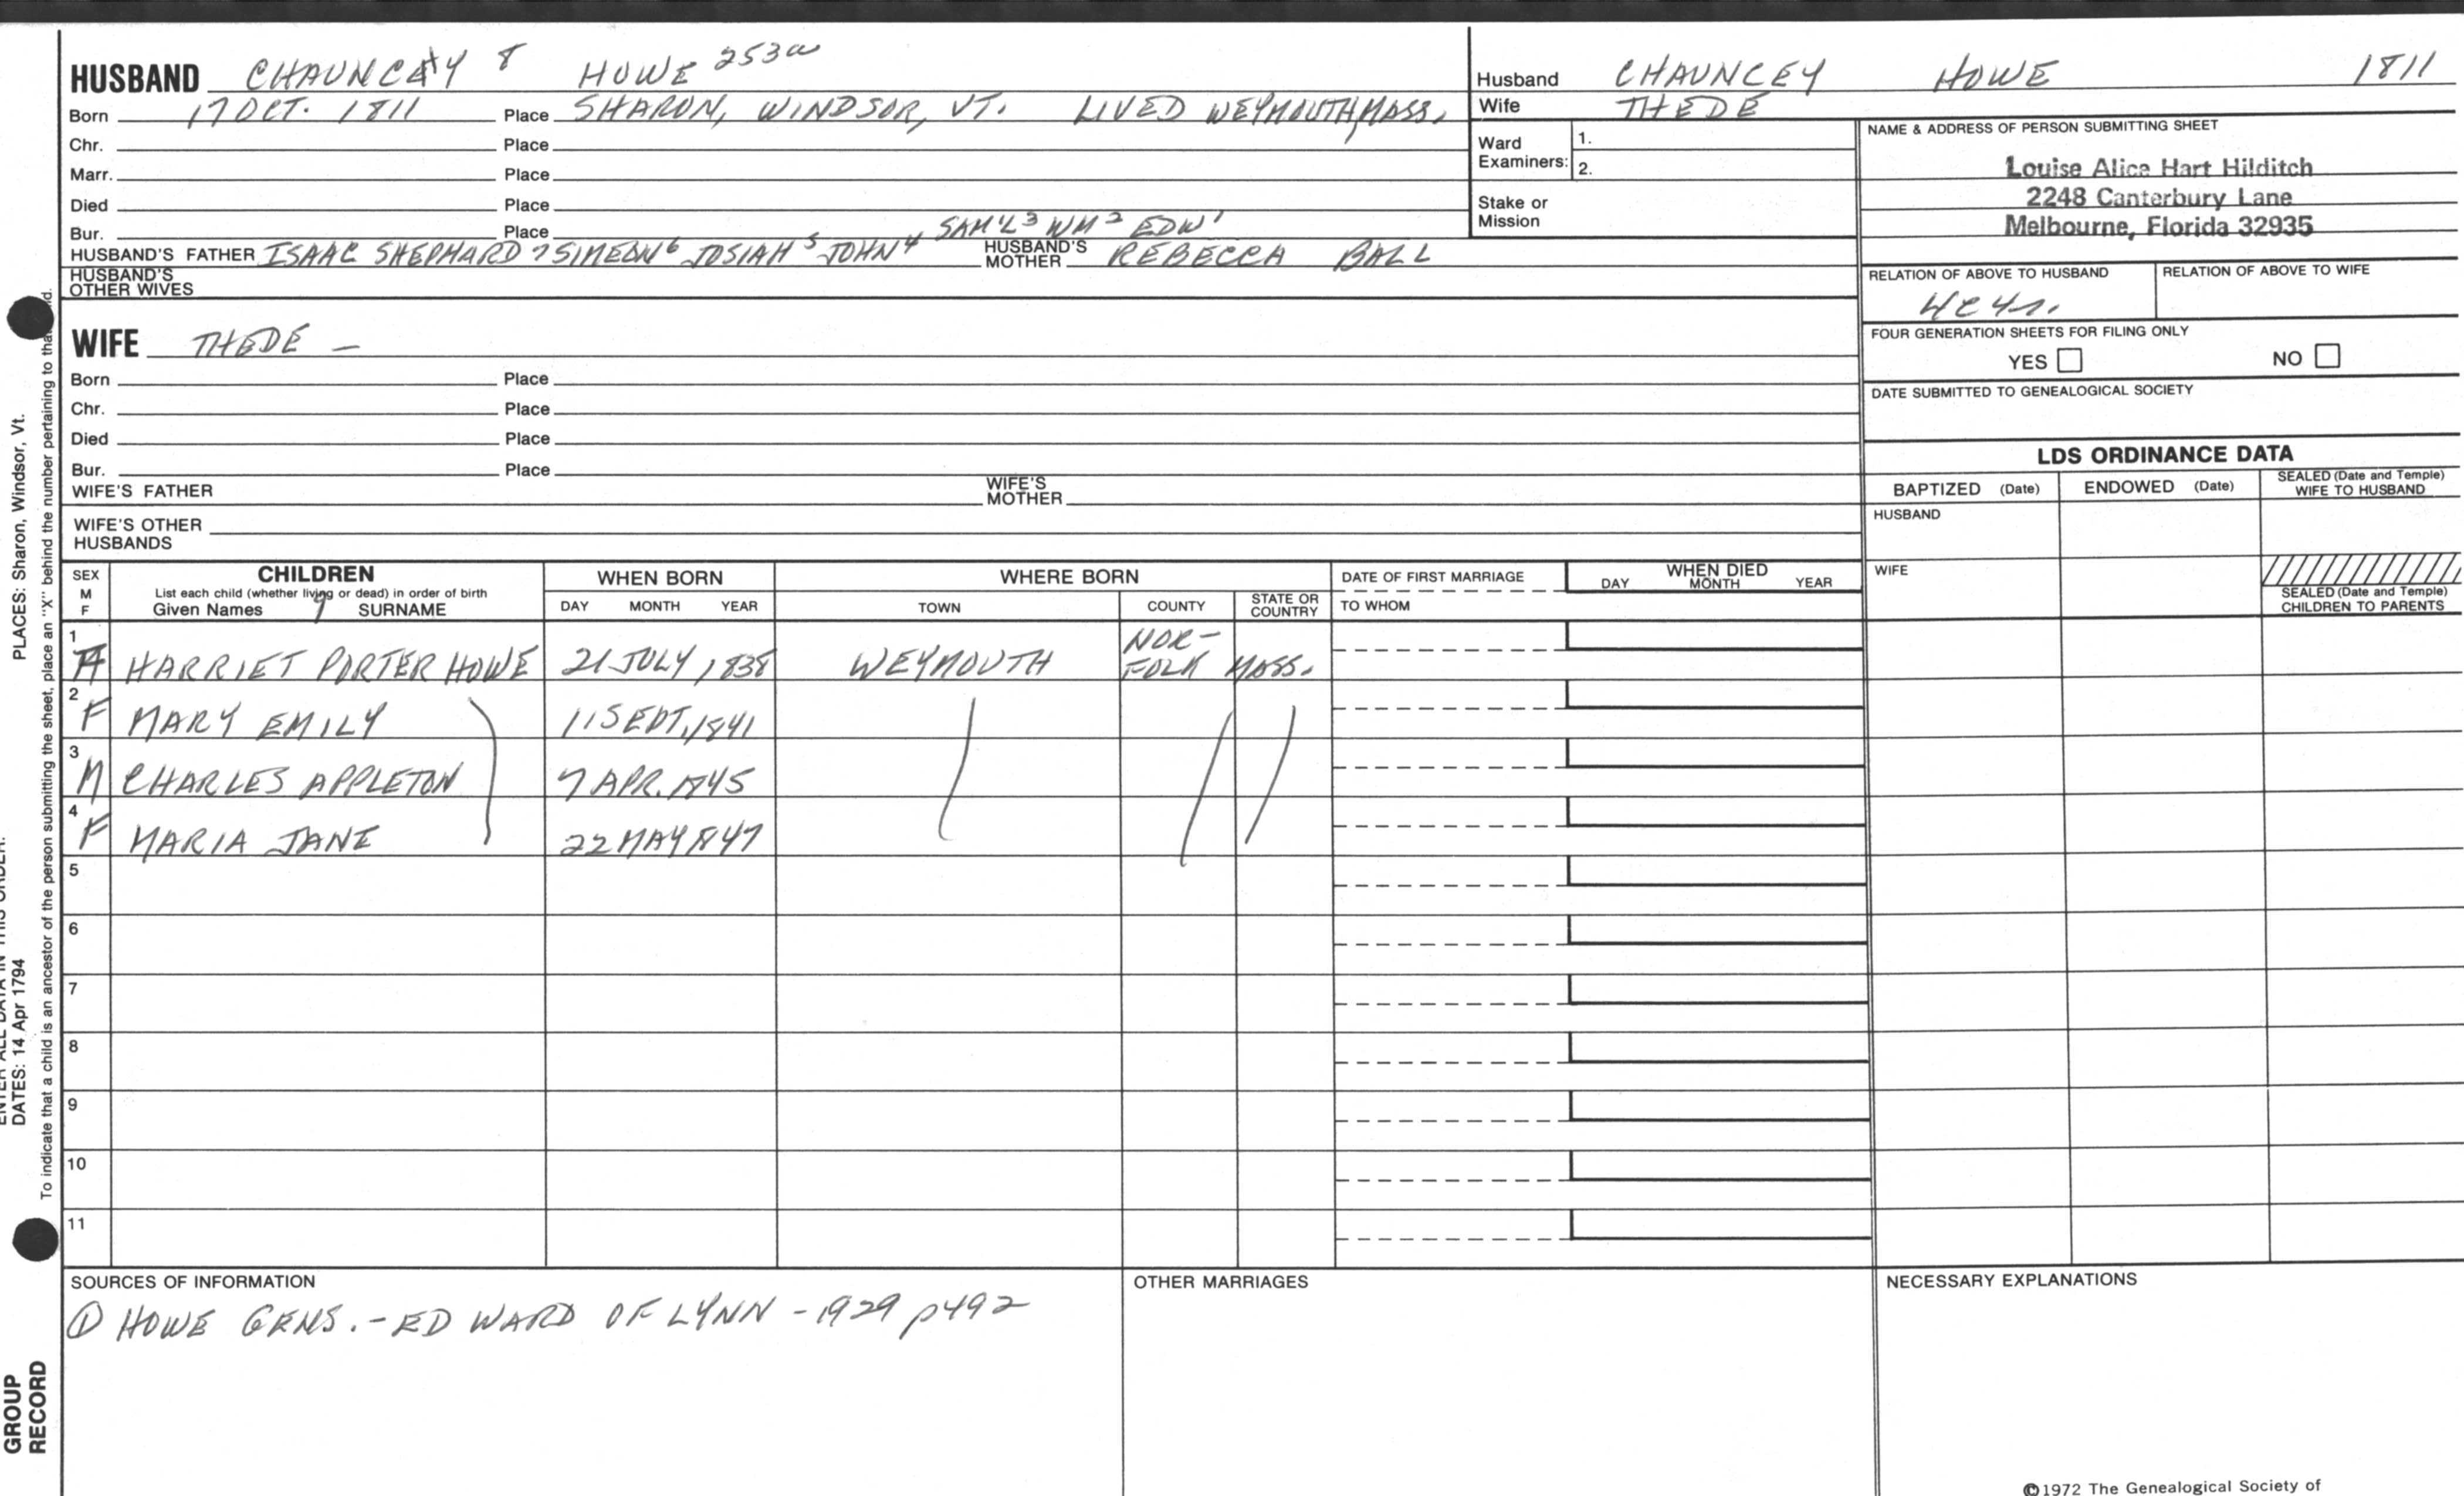 HUSBAND CHAUNCEY 8 HOWE 253a
Born 17 OCT. 1811 Place SHARON, WINDSOR, VT. LIVED WEYMOUTH, MASS.
Chr. Place
Marr. Place
Died Place
Bur. Place SAM'L 3 WM 2 EDW 1
HUSBAND'S FATHER ISAAC SHEPHARD 7 SIMEON 6 JOSIAH 5 JOHN 4 HUSBAND'S MOTHER REBECCA BALL
HUSBAND'S OTHER WIVES
WIFE THEDE —
Born Place
Chr. Place
Died Place
Bur. Place
WIFE'S FATHER WIFE'S MOTHER
WIFE'S OTHER HUSBANDS
Husband CHAUNCEY HOWE 1811
Wife THEDE
Ward Examiners: 1.
2.
Stake or Mission
NAME & ADDRESS OF PERSON SUBMITTING SHEET
Louise Alice Hart Hilditch
2248 Canterbury Lane
Melbourne, Florida 32935
RELATION OF ABOVE TO HUSBAND RELATION OF ABOVE TO WIFE
FOUR GENERATION SHEETS FOR FILING ONLY
YES NO
DATE SUBMITTED TO GENEALOGICAL SOCIETY
LDS ORDINANCE DATA
BAPTIZED (Date) ENDOWED (Date) SEALED (Date and Temple) WIFE TO HUSBAND
HUSBAND
WIFE
SEALED (Date and Temple) CHILDREN TO PARENTS
SEX M F CHILDREN WHEN BORN WHERE BORN DATE OF FIRST MARRIAGE WHEN DIED
List each child (whether living or dead) in order of birth
Given Names 9 SURNAME DAY MONTH YEAR TOWN COUNTY STATE OR COUNTRY TO WHOM DAY MONTH YEAR
1 F HARRIET PORTER HOWE 21 JULY 1838 WEYMOUTH NOR-FOLK MASS.
2 F MARY EMILY 11 SEPT. 1841
3 M CHARLES APPLETON 7 APR. 1845
4 F MARIA JANE 22 MAY 1847
5
6
7
8
9
10
11
SOURCES OF INFORMATION OTHER MARRIAGES NECESSARY EXPLANATIONS
① HOWE GENS. - EDWARD OF LYNN - 1929 p492
©1972 The Genealogical Society of
PLACES: Sharon, Windsor, Vt.
DATES: 14 Apr 1794
To indicate that a child is an ancestor of the person submitting the sheet, place an "X" behind the number pertaining to that
GROUP
RECORD